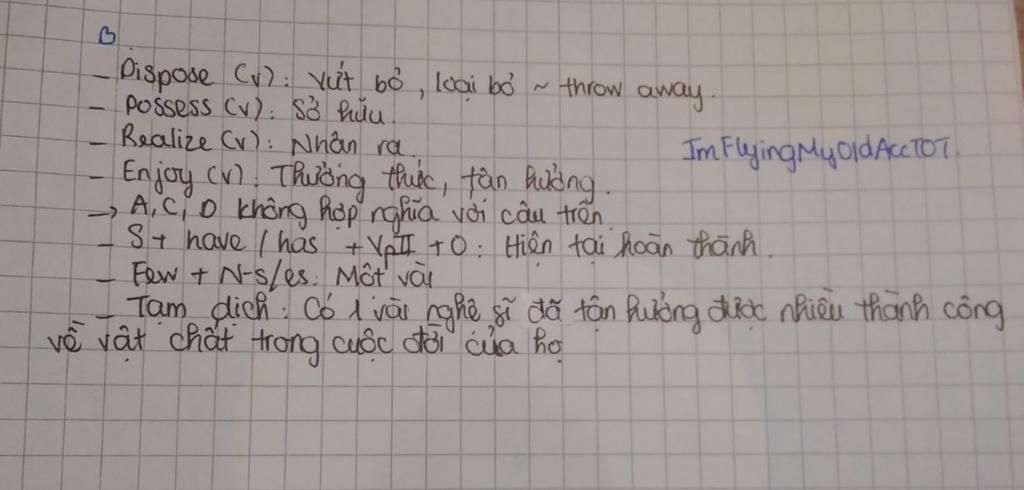 B.
- Dispose (v): Vứt bỏ, loại bỏ ~ throw away.
- Possess (v): Sở hữu.
- Realize (v): Nhân ra.
ImFlyingMyOldAccTOT.
- Enjoy (v): Thưởng thức, tận hưởng.
-> A, C, D không hợp nghĩa với câu trên
- S + have / has + VpII + O: Hiện tại hoàn thành.
- Few + N-s/es: Một vài
- Tạm dịch: Có 1 vài nghệ sĩ đã tận hưởng được nhiều thành công
về vật chất trong cuộc đời của họ